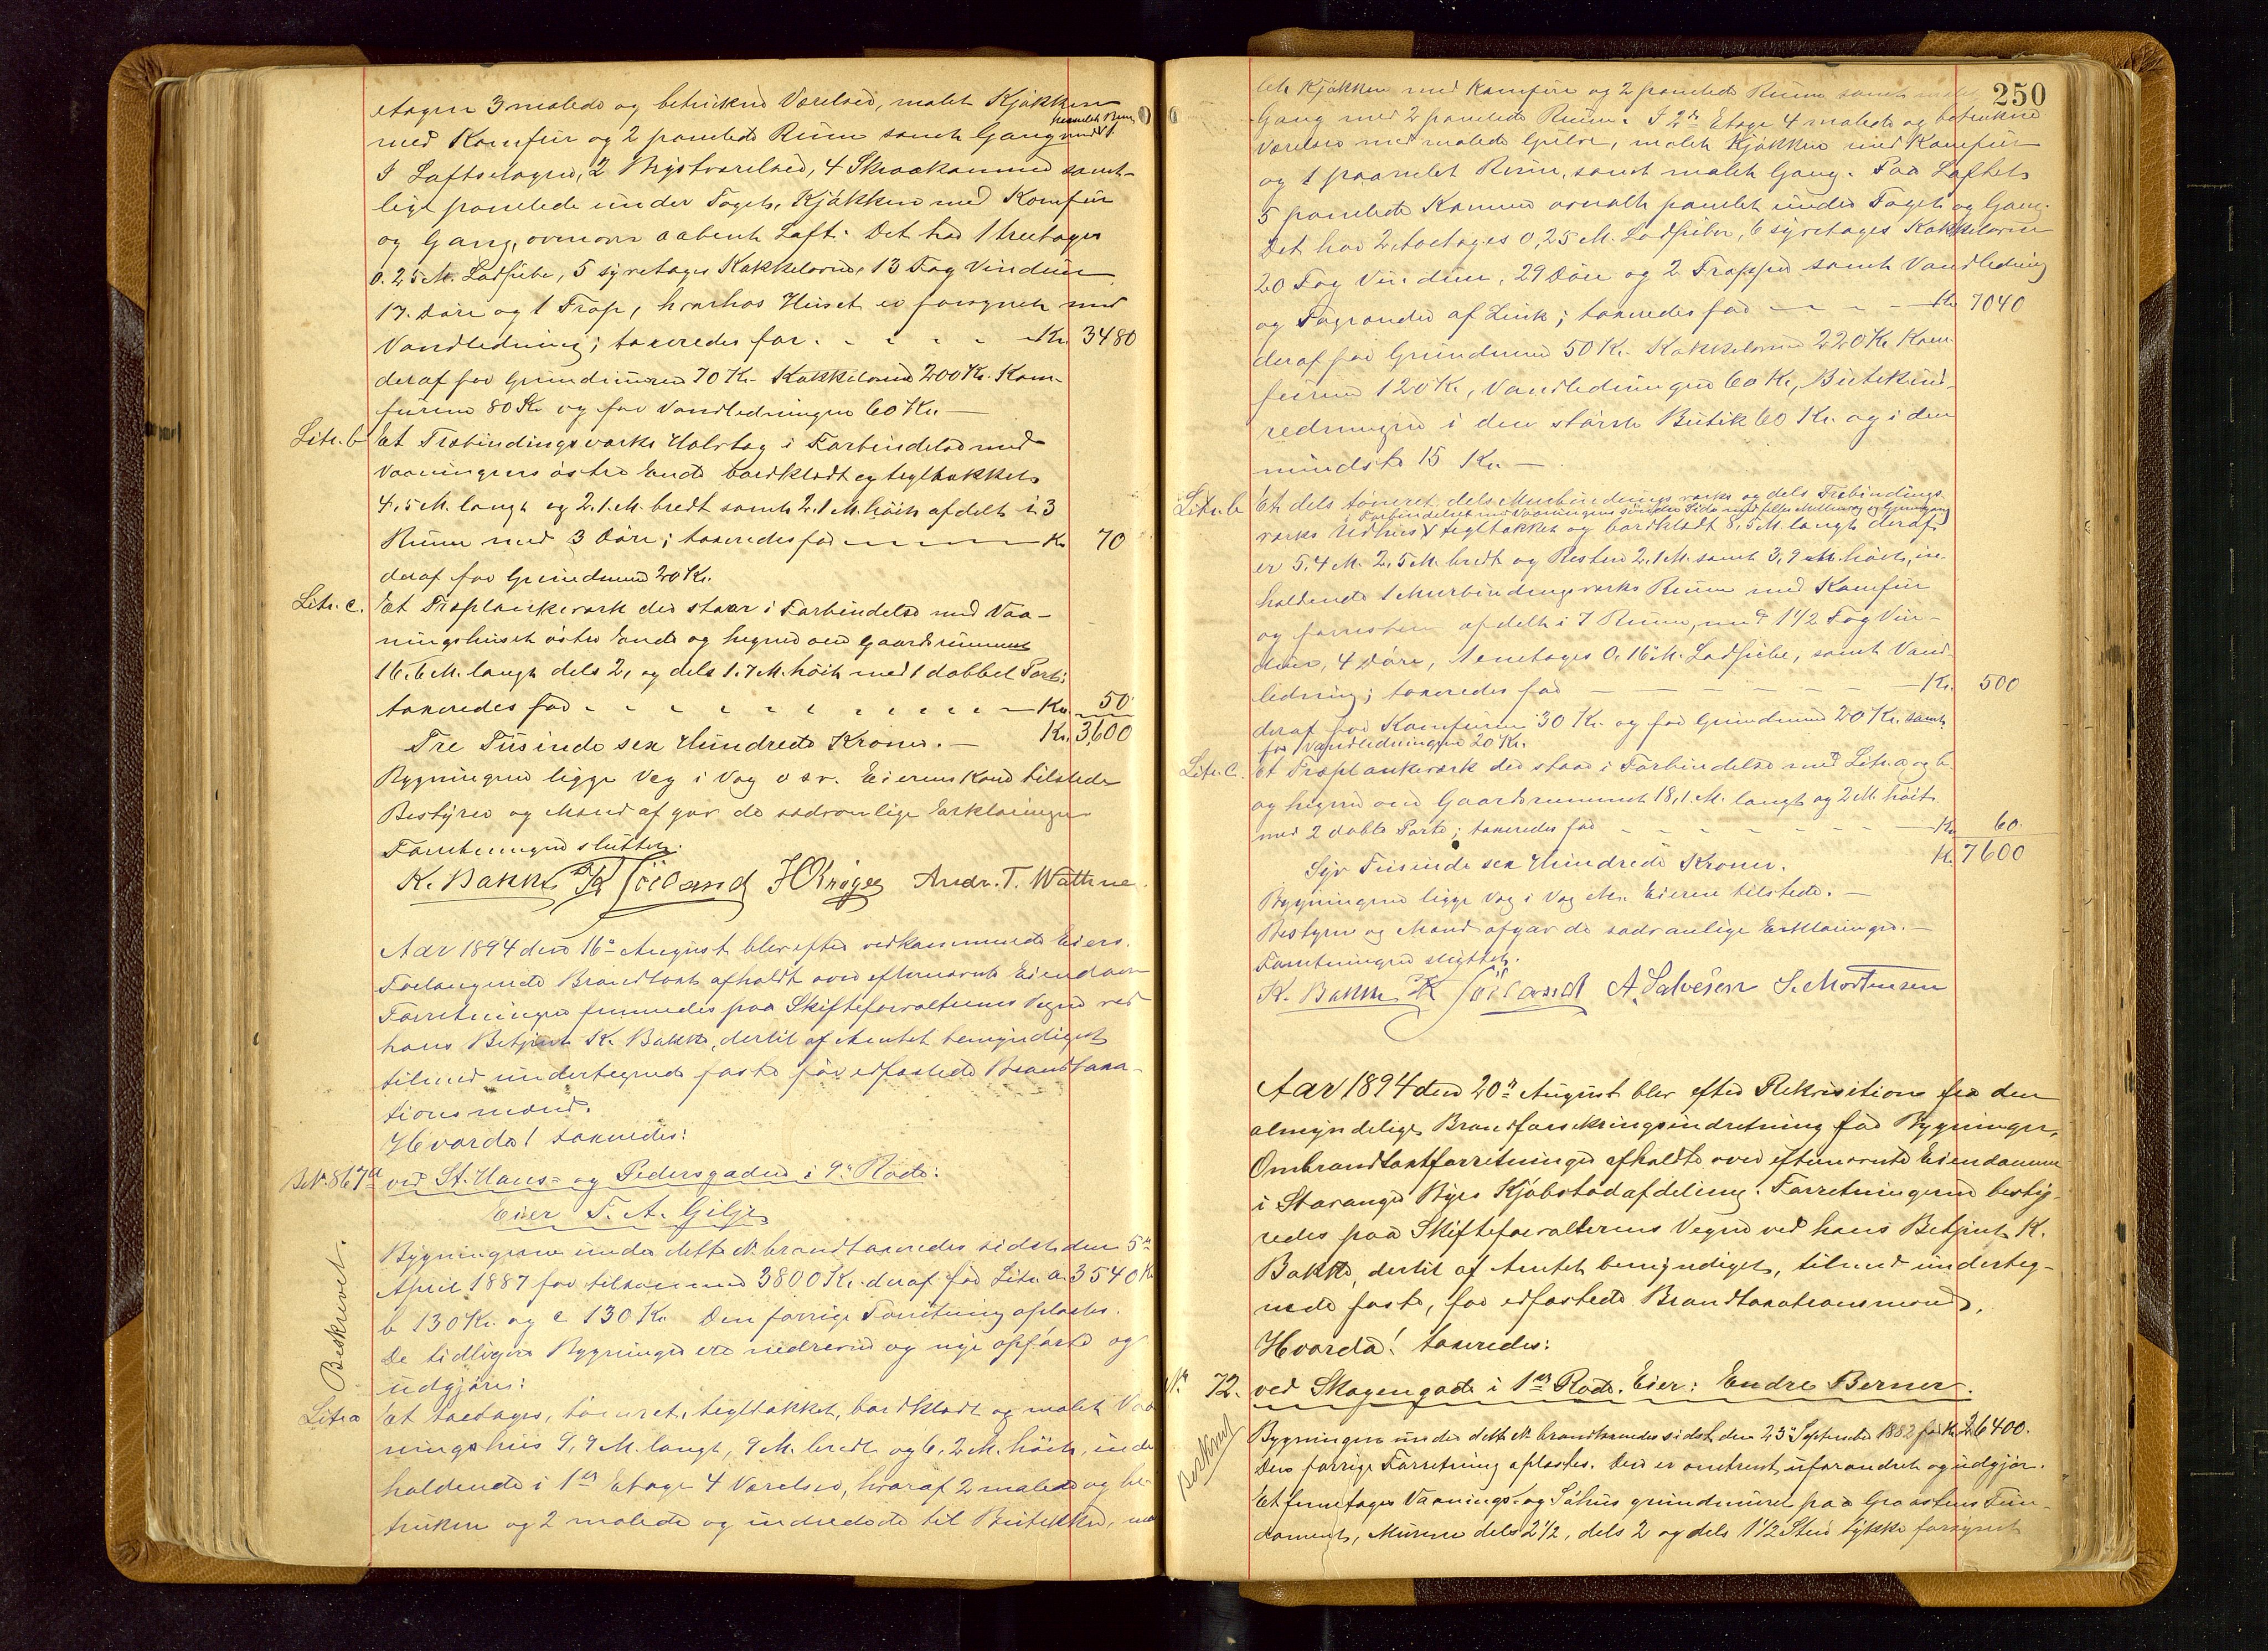 etagen 3 malede og betrukne Værelser, malet Kjøkken
med Komfur og 2 panelede Rum samt Gang med 1
panelet Rum
I Loftsetagen, 2 Brystværelser, 4 Skraakammer samt-
lige panelede under Taget, Kjøkken med Komfur
og Gang, ovenover aabent Loft. Det har 1 treetages
0.25 M. Ladpibe, 5 syvetages Kakkelovne, 13 Fag Vinduer
17 Døre og 1 Trap, hvorhos Huset er forsynet med
Vandledning; taxeredes for - - - - - Kr. 3480
deraf for Grundmuren 70 Kr. Kakkelovne 200 Kr. Kom-
furene 80 Kr og for Vandledningen 60 Kr. —
Litr. b Et Træbindingsværks Halvtag i Forbindelse med
Vaaningens østre Ende bordklædt og tegltækket
4,5 M. langt og 2.1 M. bredt samt 2.1 M. høit afdelt i 3
Rum med 3 Døre; taxeredes for — — — Kr 70
deraf for Grundmur 20 Kr.
Litr. c. Et Træplankeværk der staar i Forbindelse med Vaa-
ningshuset østre Ende og hegner om Gaardsrummet
16.6 M. langt dels 2, og dels 1.7 M. høit med 1 dobbel Port;
taxeredes for - - - - - - - - - - Kr. 50
Tre Tusinde sex Hundrede Kroner. — Kr. 3,600
Bygningerne ligge Væg i Væg o s v. Eierens Kone tilstede
Bestyrer og Mænd afgav de sædvanlige Erklæringer
Forretningen sluttet.
K. Bakke TK Soiland H Kröger Andr. T. Wathne.
Aar 1894 den 16de August blev efter vedkommende Eiers
Forlangende Brandtaxt afholdt over efternævnte Eiendom
Forretningen fremmedes paa Skifteforvalterens Vegne ved
hans Betjent K. Bakke, dertil af Amtet bemyndiget
tilmed undertegnede faste for edfæstede Brandtaxa-
tionsmænd.
Hvorda! taxeredes:
B. No. 867a ved St. Hans- og Pedersgaden i 9de Rode:
Eier T. A. Gilje
Bygningerne under dette No brandtaxeredes sidst den 5te
April 1887 for tilsammen 3800 Kr. deraf for Litr. a 3540 Kr
b 130 Kr. og c 130 Kr. Den forrige Forretning oplæstes.
De tidligere Bygninger ere nedrevne og nye opførte og
udgjøres:
Beskrevet.
Litr. a Et toetages, tømret, tegltækket, bordklædt og malet Vaa
ningshus 9,9 M. langt, 9 M. bredt og 6,2 M. høit, inde
holdende i 1ste Etage 4 Værelser, hvoraf 2 malede og be-
trukne og 2 malede og indredede til Butikker, ma
250
let Kjøkken med Komfur og 2 panelede Rum samt malet
Gang med 2 panelede Rum. I 2den Etage 4 malede og betrukne
Værelser med malede Gulve, malet Kjøkken med Komfur
og 1 paanelet Rum, samt malet Gang. Paa Loftet
5 panelede Kammer ovnalt panelet under Taget og Gang.
Det har 2 toetages 0,25 M. Ladpiber, 6 syvetages Kakkelovne
20 Fag Vinduer, 29 Døre og 2 Trapper samt Vandledning
og Tagrender af Zink; taxeredes for — — — Kr. 7040
deraf for Grundmur 50 Kr. Kakkelovne 220 Kr Kom-
furene 120 Kr, Vandledningen 60 Kr, Butikind-
redningen i den største Butik 60 Kr. og i den
mindste 15 Kr. —
Litr. b Et dels tømret, dels Murbindings værks og dels Træbindings-
i Forbindelse med Vaaningens søndre Side med fælles Mellemvæg og Gjennemgang
værks Udhus tegltækket og bordklædt 8,5 M. langt deraf
er 5.4 M. 2,5 M. bredt og Resten 2,1 M. samt 3,9 M. høit, in-
holdende 1 Murbindingsværks Rum med Komfur
og forresten afdelt i 7 Rum, med 1 1/2 Fag Vin-
duer, 4 Døre, 1 enetages 0,16 M. Ladpibe, samt Vand-
ledning; taxeredes for — — — — — — Kr. 500
deraf for Komfuren 30 Kr. og for Grundmur 20 Kr. samt
for Vandledningen 20 Kr.
Litr. c. Et Træplankeværk der staar i Forbindelse med Litr. a og b.
og hegner om Gaardsrummet 18,1 M. langt og 2 M. høit
med 2 doble Porte; taxeredes for - - - - - Kr. 60
Syv Tusinde sex Hundrede Kroner. Kr. 7600
Bygningerne ligge Væg i Væg Mr. Eieren tilstede. —
Bestyrer og Mænd afgav de sædvanlige Erklæringer. —
Forretningen sluttet.
K. Bakke TK Soiland A. Salvesen S. Mortensen
Aar 1894 den 20de August blev efter Rekvisition fra den
almindelige Brandforsikringsindretning for Bygninger,
Ombrandtaxtforretninger afholdte over efternævnte Eiendomme
i Stavanger Byes Kjøbstadafdeling. Forretningerne besty-
redes paa Skifteforvalterens Vegne ved hans Betjent K.
Bakke, dertil af Amtet bemyndiget, tilmed underteg-
nede faste, for edfæstede Brandtaxationsmænd.
Hvorda! taxeredes:
No. 72. ved Skagengade i 1ste Rode. Eier: Endre Berner.
Beskrevet
Bygningen under dette No brandtaxeredes sidst den 23de September 1882 for Kr. 26400.
Den forrige Forretning oplæstes. Den er omtrent uforandret og udgjør.
Et femetages Vaanings- og Søhus grundmuret paa Graastens Fun-
dament, Murene dels 2 1/2, dels 2 og dels 1 1/2 Sten tykke forsynet